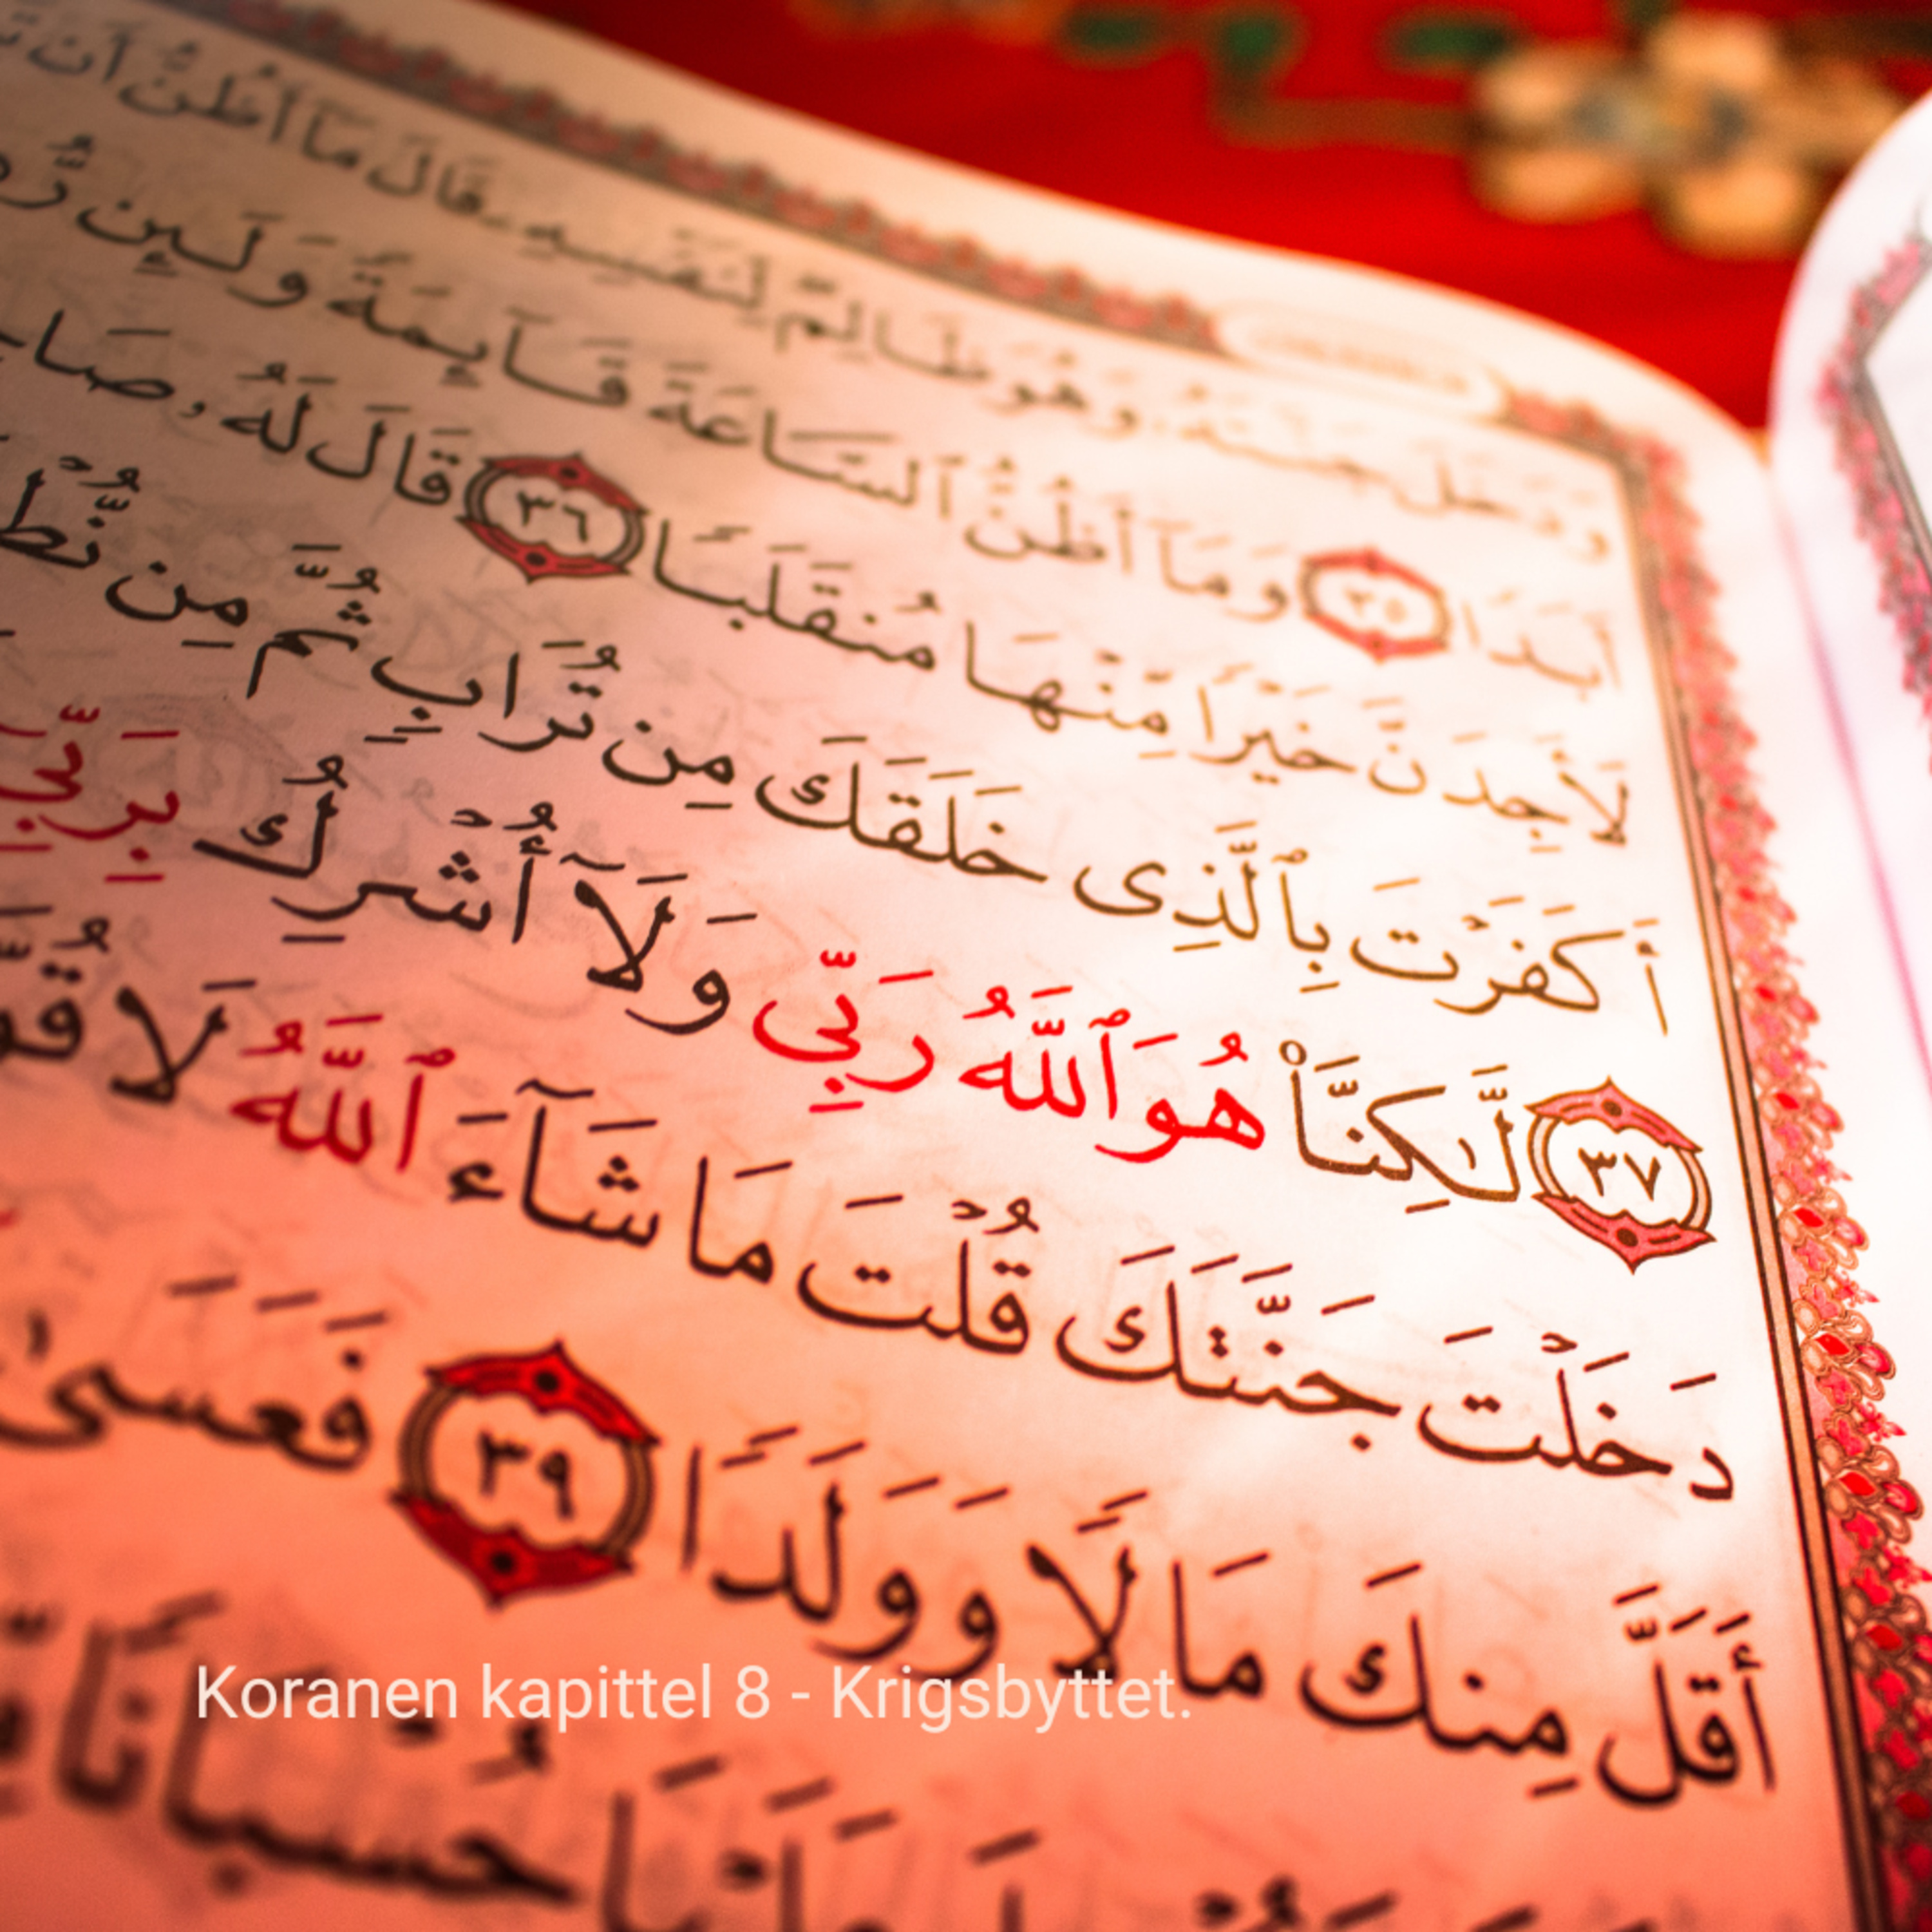 وَدَخَلَ جَنَّتَهُۥ وَهُوَ ظَالِمٌ لِّنَفْسِهِۦ قَالَ مَآ أَظُنُّ أَن
أَبَدًا ٣٥ وَمَآ أَظُنُّ ٱلسَّاعَةَ قَآئِمَةً وَلَئِن
لَأَجِدَنَّ خَيْرًا مِّنْهَا مُنقَلَبًا ٣٦ قَالَ لَهُۥ
أَكَفَرْتَ بِٱلَّذِى خَلَقَكَ مِن تُرَابٍ ثُمَّ مِن
٣٧ لَّٰكِنَّا۠ هُوَ ٱللَّهُ رَبِّى وَلَآ أُشْرِكُ بِرَبِّىٓ
دَخَلْتَ جَنَّتَكَ قُلْتَ مَا شَآءَ ٱللَّهُ لَا
أَقَلَّ مِنكَ مَالًا وَوَلَدًا ٣٩ فَعَسَىٰ
حُسْبَانًا
Koranen kapittel 8 - Krigsbyttet.